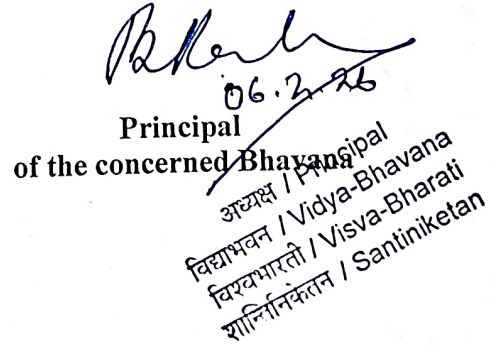 06.2.26
Principal
of the concerned Bhavana
अध्यक्ष / Principal
विद्याभवन / Vidya-Bhavana
विश्वभारती / Visva-Bharati
शान्तिनिकेतन / Santiniketan